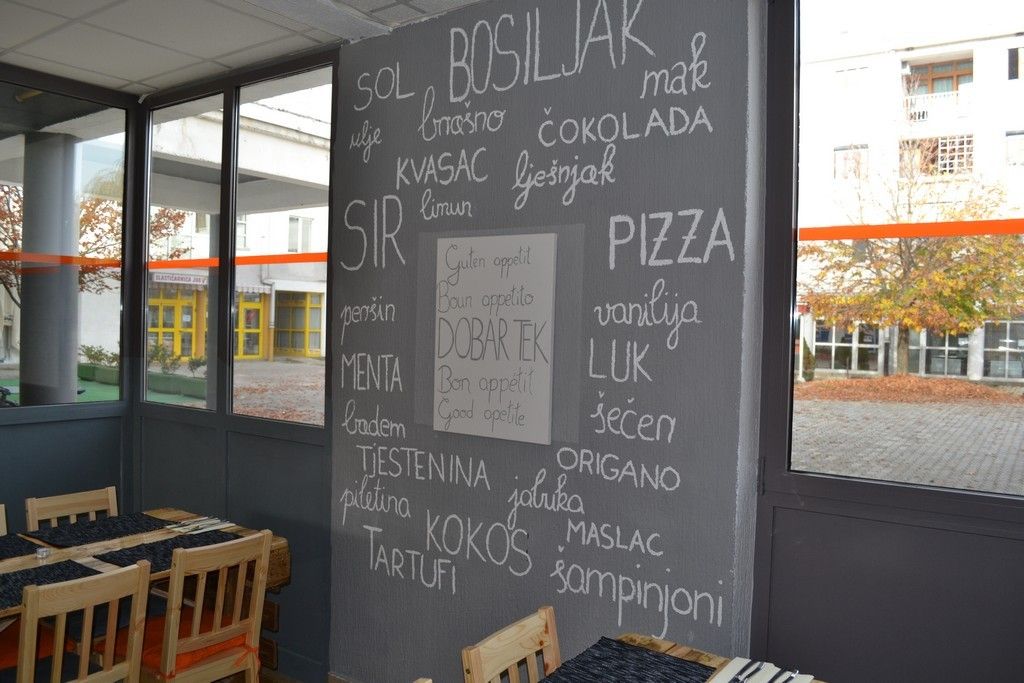 BOSILJAK
SOL
mak
ulje
brašno
ČOKOLADA
KVASAC
lješnjak
SIR
limun
PIZZA
Guten appetit
Boun appetito
DOBAR TEK
Bon appétit
Good apetite
peršin
vanilija
MENTA
LUK
badem
šećer
TJESTENINA
ORIGANO
piletina
jabuka
KOKOS
MASLAC
TARTUFI
šampinjoni